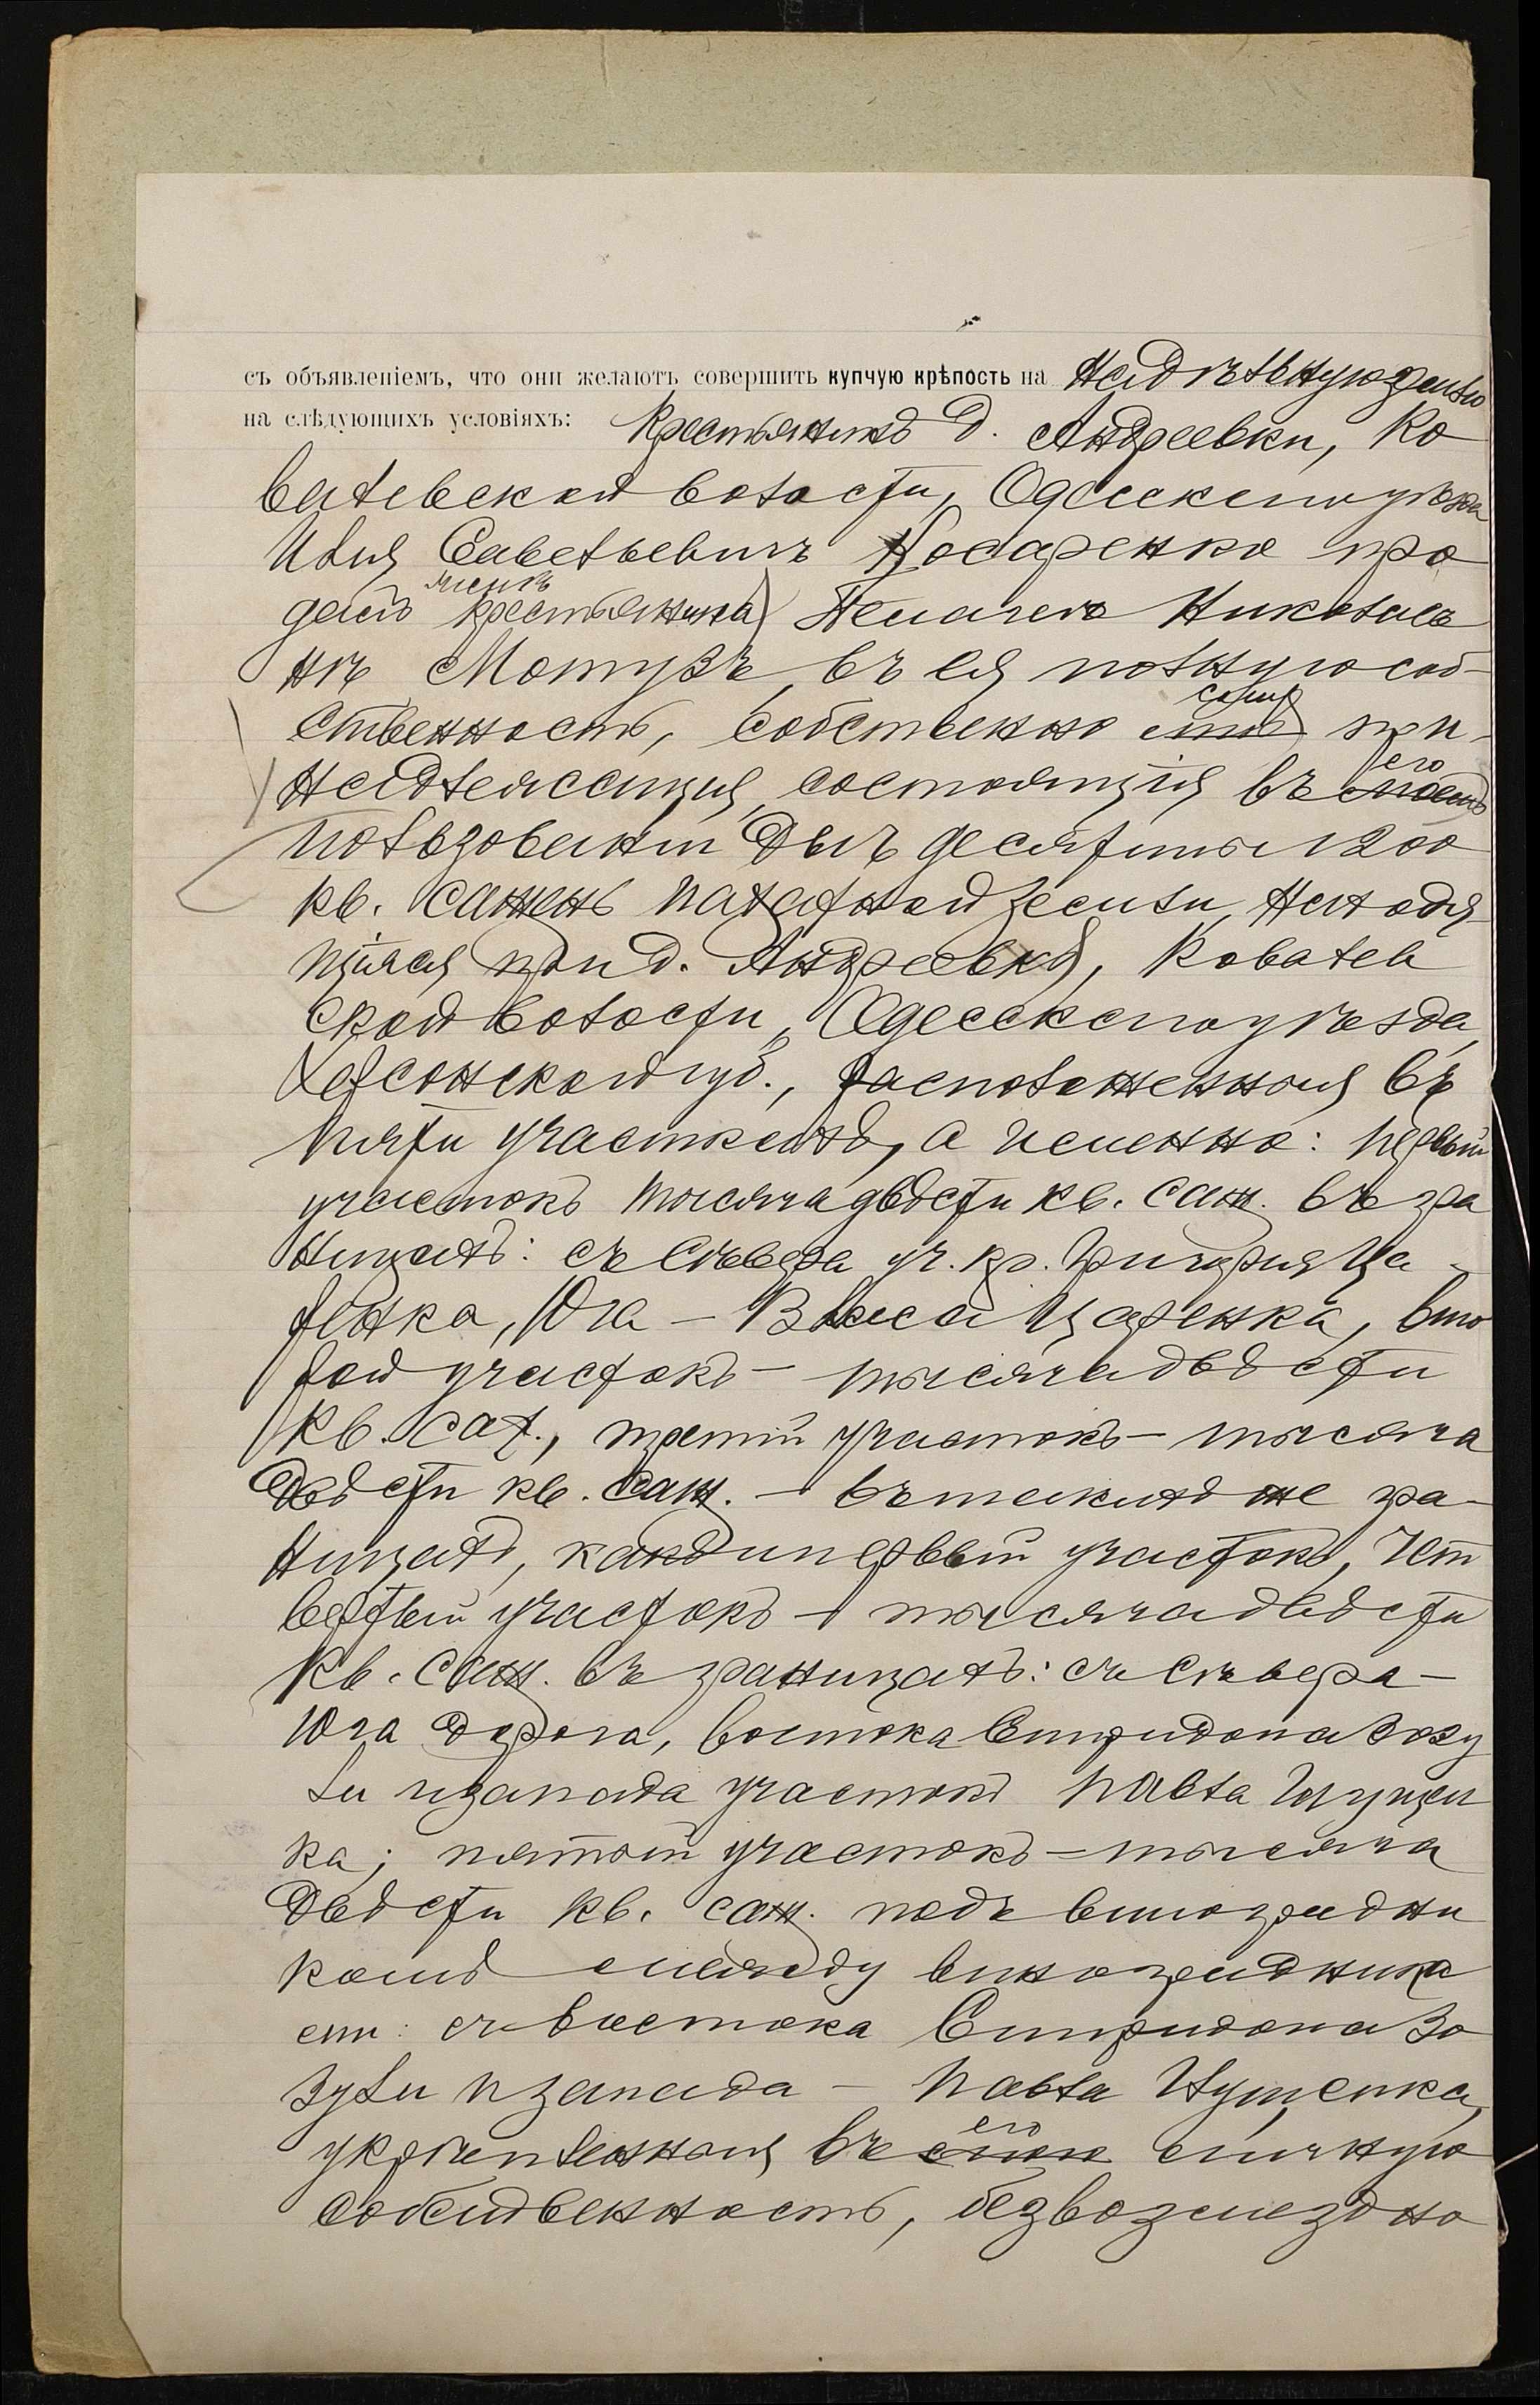 съ объявленіемъ, что они желаютъ совершить купчую крѣпость на надѣльную землю
на слѣдующихъ условіяхъ: Крестьянинъ д. Андреевки, Ко
валевской волости, Одесскаго уѣзда
Илія Савельевичъ Косаренко про
далъ крестьянина Пелагеѣ Николаев
нѣ Мотузъ, въ ея полную соб-
ственность, собственно ему при-
надлежащія, состоящія въ его моемъ
пользованіи двѣ десятины 1200
кв. сажень пахатной земли, находя
щіяся при д. Андреевкѣ, Ковалев
ской волости, Одесскаго уѣзда,
Херсонской губ., расположенныя въ
пяти участкахъ, а именно: первый
участокъ тысяча двѣсти кв. саж. въ гра
ницахъ: съ Сѣвера уч. кр. Григорія Ца
ренка, Юга – Власа Царенка, вто
рой участокъ – тысяча двѣсти
кв. саж., третій участокъ – тысяча
двѣсти кв. саж. – въ такихъ же гра-
ницахъ, какъ и первый участокъ, чет
вертый участокъ – тысяча двѣсти
кв. саж. въ границахъ: съ Сѣвера –
Юга дорога, востока Спиридона Зозу
ли и запада участокъ Павла
ка; пятый участокъ – тысяча
двѣсти кв. саж. подъ виноградни
комъ между виноградника
ми: съ востока Спиридона Зо
зули и запада – Павла
укрѣпленныя въ его мою личную
собственность, безвозмездно